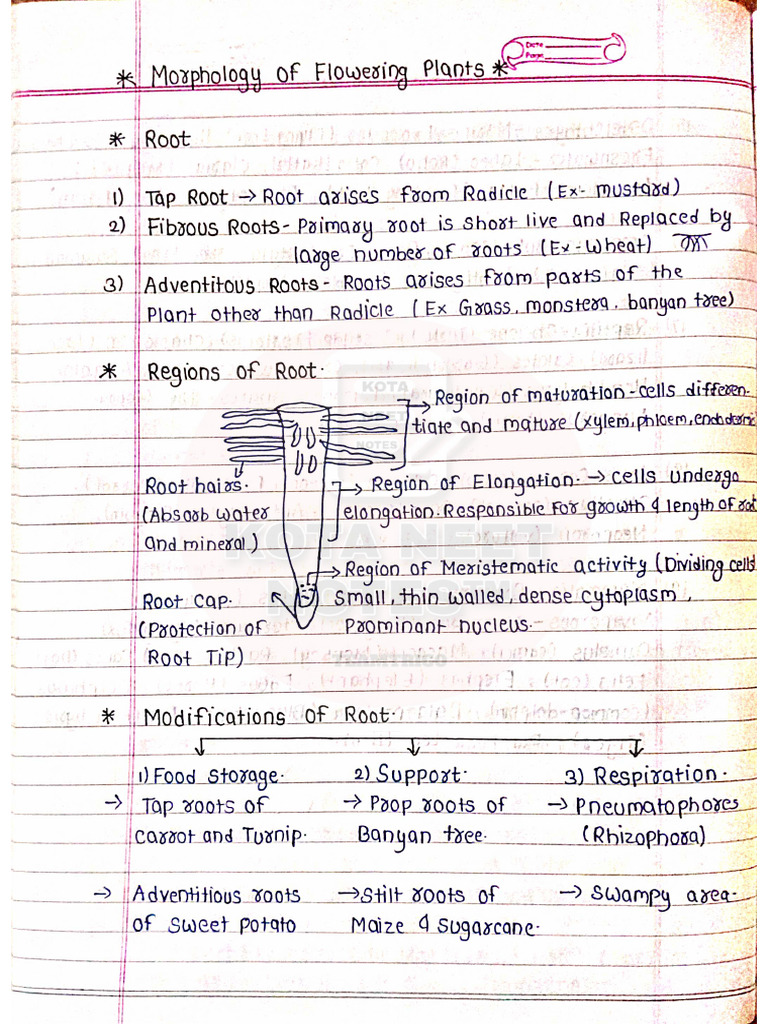 Date
Page
* Morphology of Flowering Plants *
* Root
1) Tap Root → Root arises from Radicle (Ex- mustard)
2) Fibrous Roots - Primary root is short live and Replaced by
large number of roots (Ex - Wheat)
3) Adventitous Roots - Roots arises from parts of the
Plant other than Radicle (Ex Grass, monstera, banyan tree)
* Regions of Root.
→ Region of maturation - cells differen-
tiate and mature (xylem, phloem, endodermis
Root hairs.
(Absorb water
and mineral)
→ Region of Elongation. → cells undergo
elongation. Responsible for growth & length of root
→ Region of Meristematic activity (Dividing cells
Small, thin walled, dense cytoplasm,
Prominant nucleus.
Root cap.
(Protection of
Root Tip)
KOTA
NEET
NOTES
KOTA NEET
NOTES
* Modifications of Root.
1) Food storage. 2) Support. 3) Respiration.
→ Tap roots of → Prop roots of → Pneumatophores
carrot and Turnip. Banyan tree. (Rhizophora)
→ Adventitious roots → Stilt roots of → Swampy area.
of sweet potato Maize & Sugarcane.